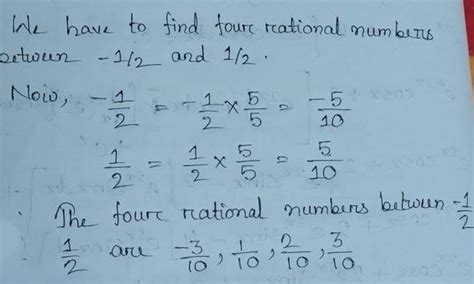 We have to find four rational numbers
between -1/2 and 1/2.
Now, -1/2 = -1/2 × 5/5 = -5/10
1/2 = 1/2 × 5/5 = 5/10
∴ The four rational numbers between -1/2
1/2 are -3/10, 1/10, 2/10, 3/10